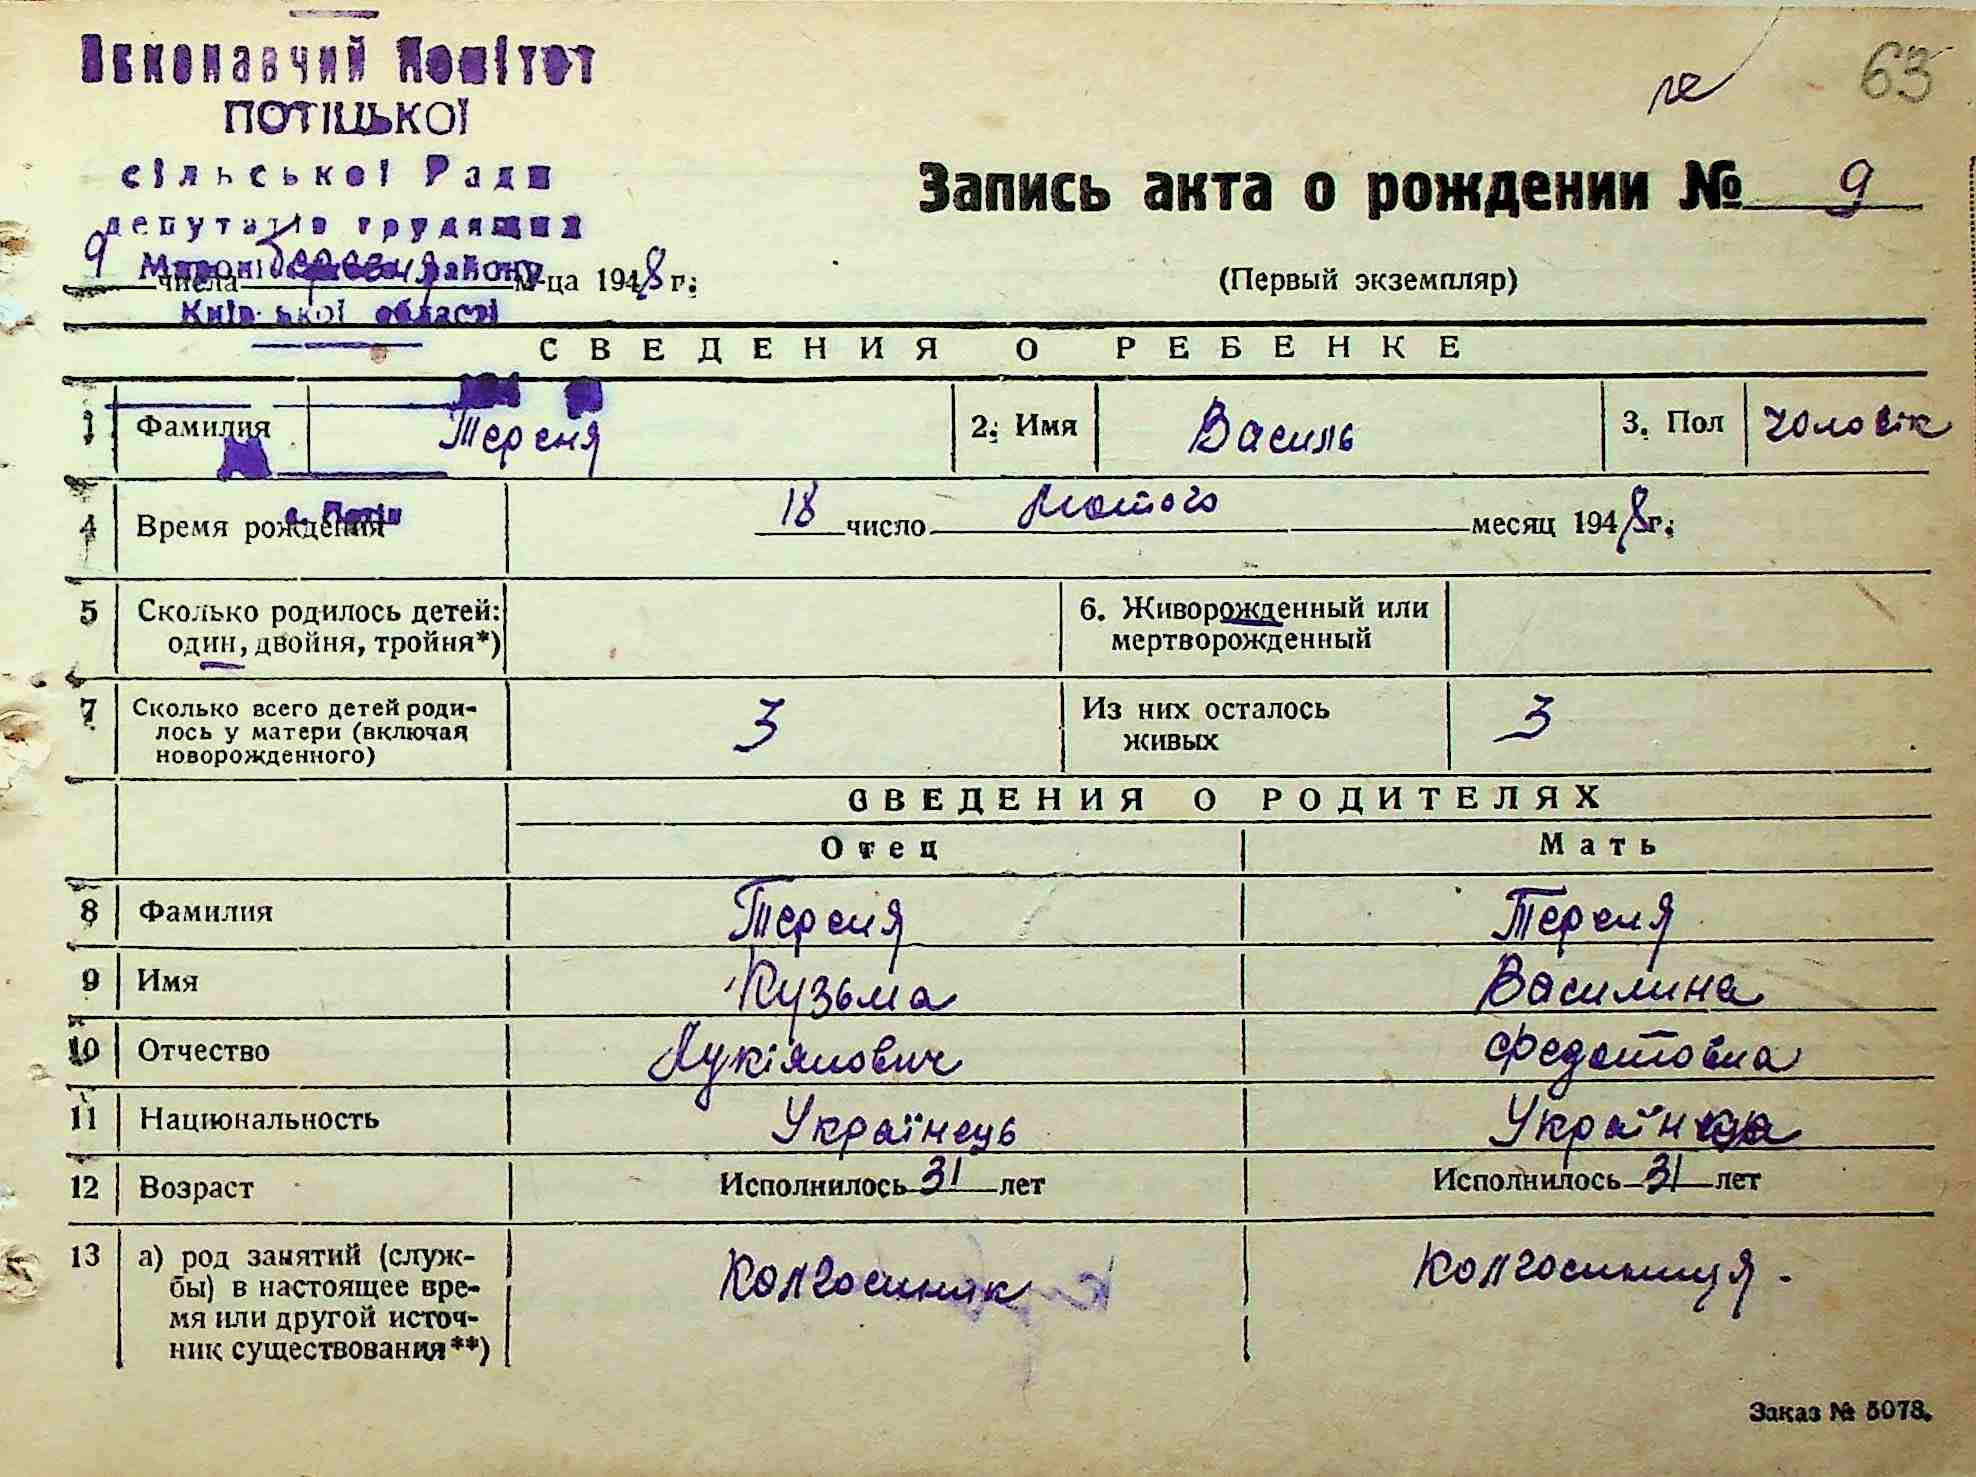 Виконавчий Комітет
ПОТІЦЬКОЇ
сільської Ради
депутатів трудящих
Миронівського району
Київської області
с. Потік
63
Запись акта о рождении № 9
9 числа березня м-ца 1948 г.
(Первый экземпляр)
СВЕДЕНИЯ О РЕБЕНКЕ
1 Фамилия Тереня 2. Имя Василь 3. Пол чоловік
4 Время рождения 18 число лютого месяц 1948 г.
5 Сколько родилось детей: один, двойня, тройня*) 6. Живорожденный или мертворожденный
7 Сколько всего детей родилось у матери (включая новорожденного) 3 Из них осталось живых 3
СВЕДЕНИЯ О РОДИТЕЛЯХ
Отец Мать
8 Фамилия Тереня Тереня
9 Имя Кузьма Василина
10 Отчество Лукіянович Федотовна
11 Национальность Українець Українка
12 Возраст Исполнилось 31 лет Исполнилось 31 лет
13 а) род занятий (служ-
бы) в настоящее вре-
мя или другой источ-
ник существования**) Колгоспник Колгоспниця.
Заказ № 5078.